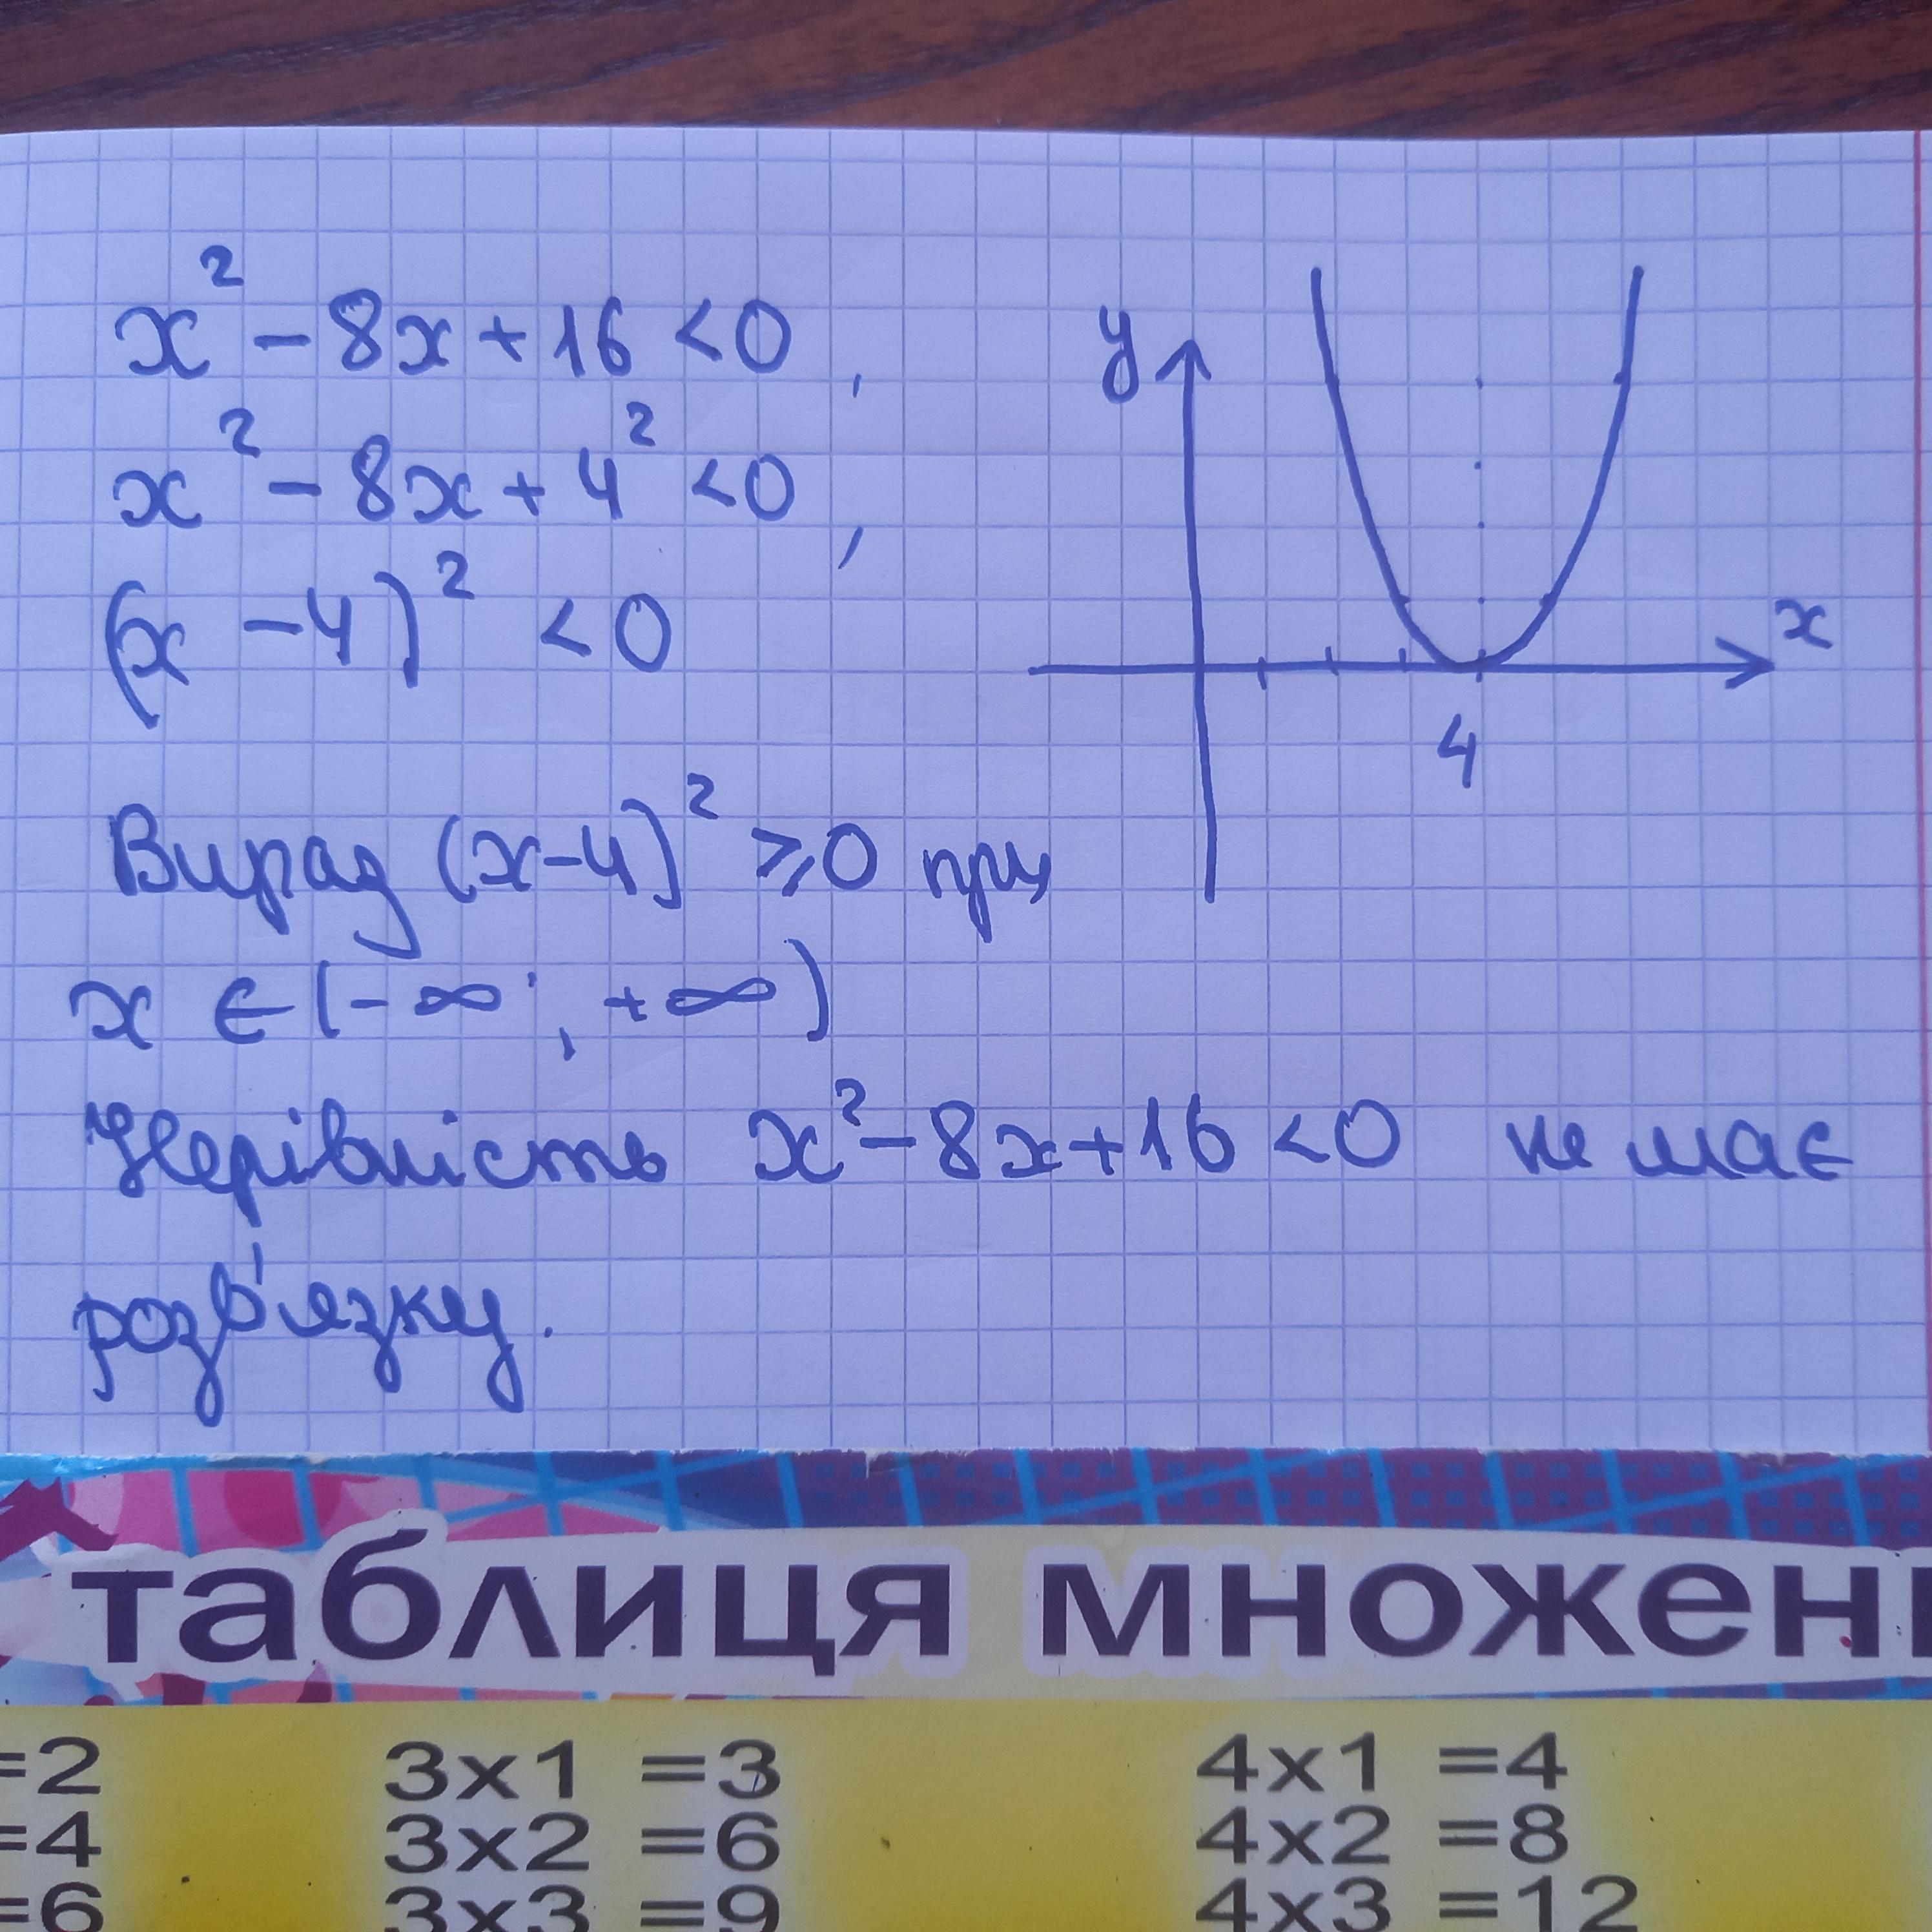 x² - 8x + 16 < 0,
x² - 8x + 4² < 0,
(x - 4)² < 0
y
x
4
Вираз (x-4)² ⩾ 0 при
x ∈ (-∞; +∞)
Нерівність x² - 8x + 16 < 0 не має
розв'язку.
таблиця множен
=2 3x1 =3 4x1 =4
=4 3x2 =6 4x2 =8
=6 3x3 =9 4x3 =12